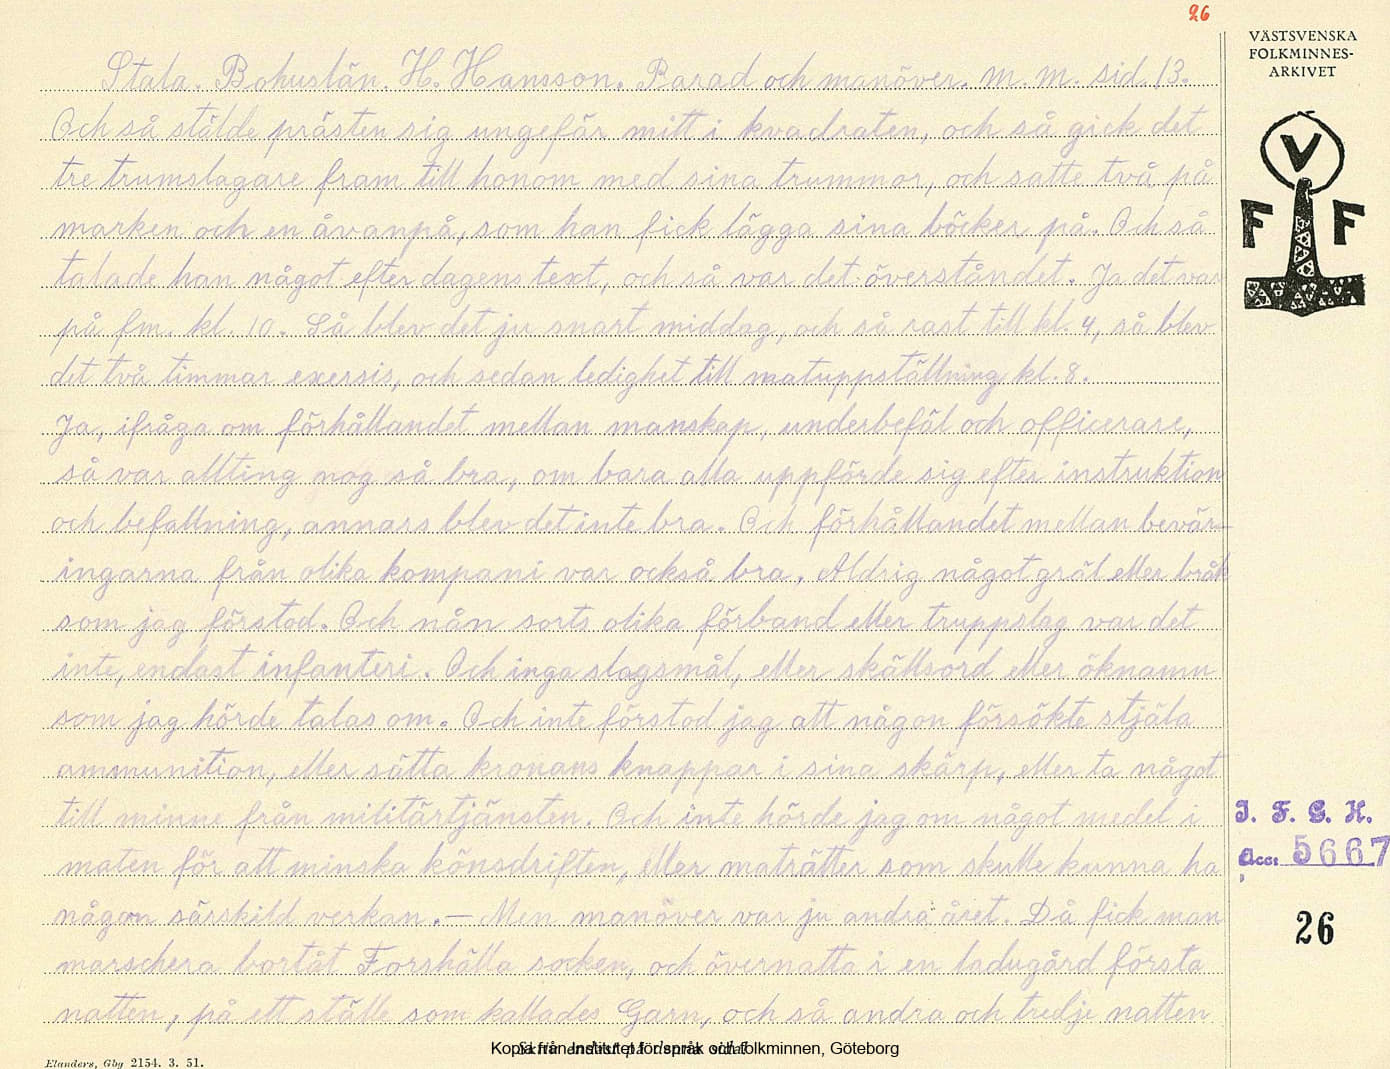 26
VÄSTSVENSKA
FOLKMINNES-
ARKIVET
V
F F
Stala. Bohuslän. H. Hansson. Parad och manöver. m. m. sid. 13.
Och så stälde prästen sig ungefär mitt i kvadraten, och så gick det
tre trumslagare fram till honom med sina trummor, och satte två på
marken och en åvanpå, som han fick lägga sina böcker på. Och så
talade han något efter dagens text, och så var det överståndet. Ja det var
på fm. kl. 10. Så blev det ju snart middag, och så rast till kl. 4, så blev
det två timmar exersis, och sedan ledighet till matuppställning kl. 8.
Ja, ifråga om förhållandet mellan manskap, underbefäl och officerare,
så var allting nog så bra, om bara alla uppförde sig efter instruktion
och befallning, annars blev det inte bra. Och förhållandet mellan bevär-
ingarna från olika kompani var också bra. Aldrig något gräl eller bråk
som jag förstod. Och nån sorts olika förband eller truppslag var det
inte, endast infanteri. Och inga slagsmål, eller skällsord eller öknamn
som jag hörde talas om. Och inte förstod jag att någon försökte stjäla
ammunition, eller sätta kronans knappar i sina skärp, eller ta något
till minne från militärtjänsten. Och inte hörde jag om något medel i
maten för att minska könsdriften, eller maträtter som skulle kunna ha
någon särskild verkan. — Men manöver var ju andra året. Då fick man
marschera bortåt Forshälla socken, och övernatta i en ladugård första
natten, på ett ställe som kallades Garn, och så andra och tredje natten
I. F. G. H.
Acc. 5667
26
Skriv endast på denna sida!
Kopia från Institutet för språk och folkminnen, Göteborg
Elanders, Gbg 2154. 3. 51.